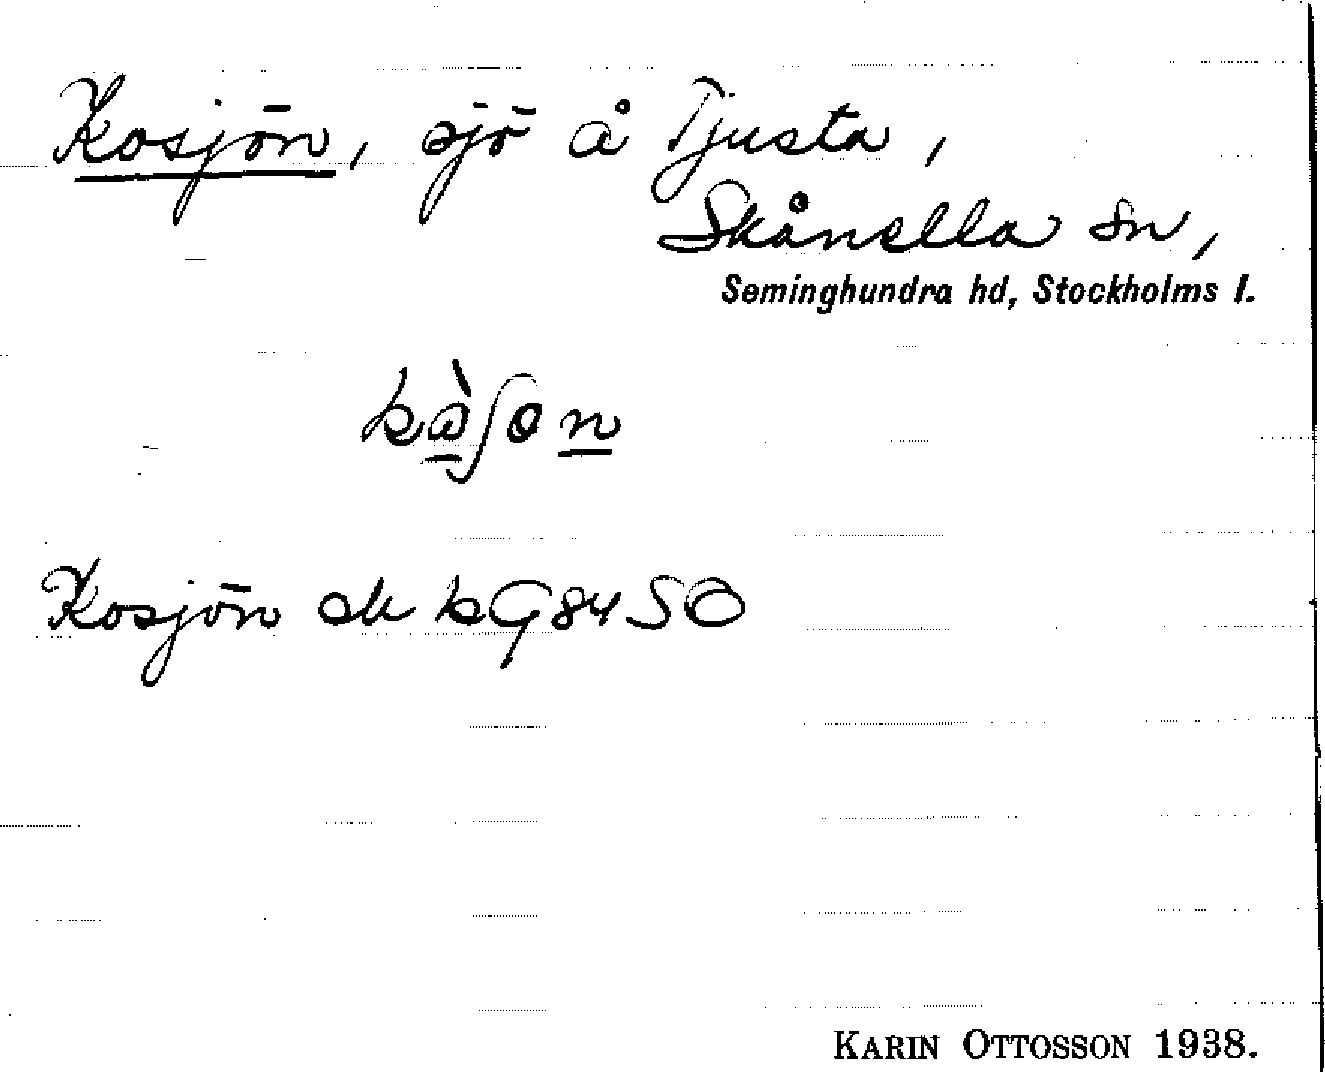 Kosjön, sjö å Tjusta,
Skånella sn,
Seminghundra hd, Stockholms l.
kàʃon
Kosjön ek k 9 84 SO
KARIN OTTOSSON 1938.